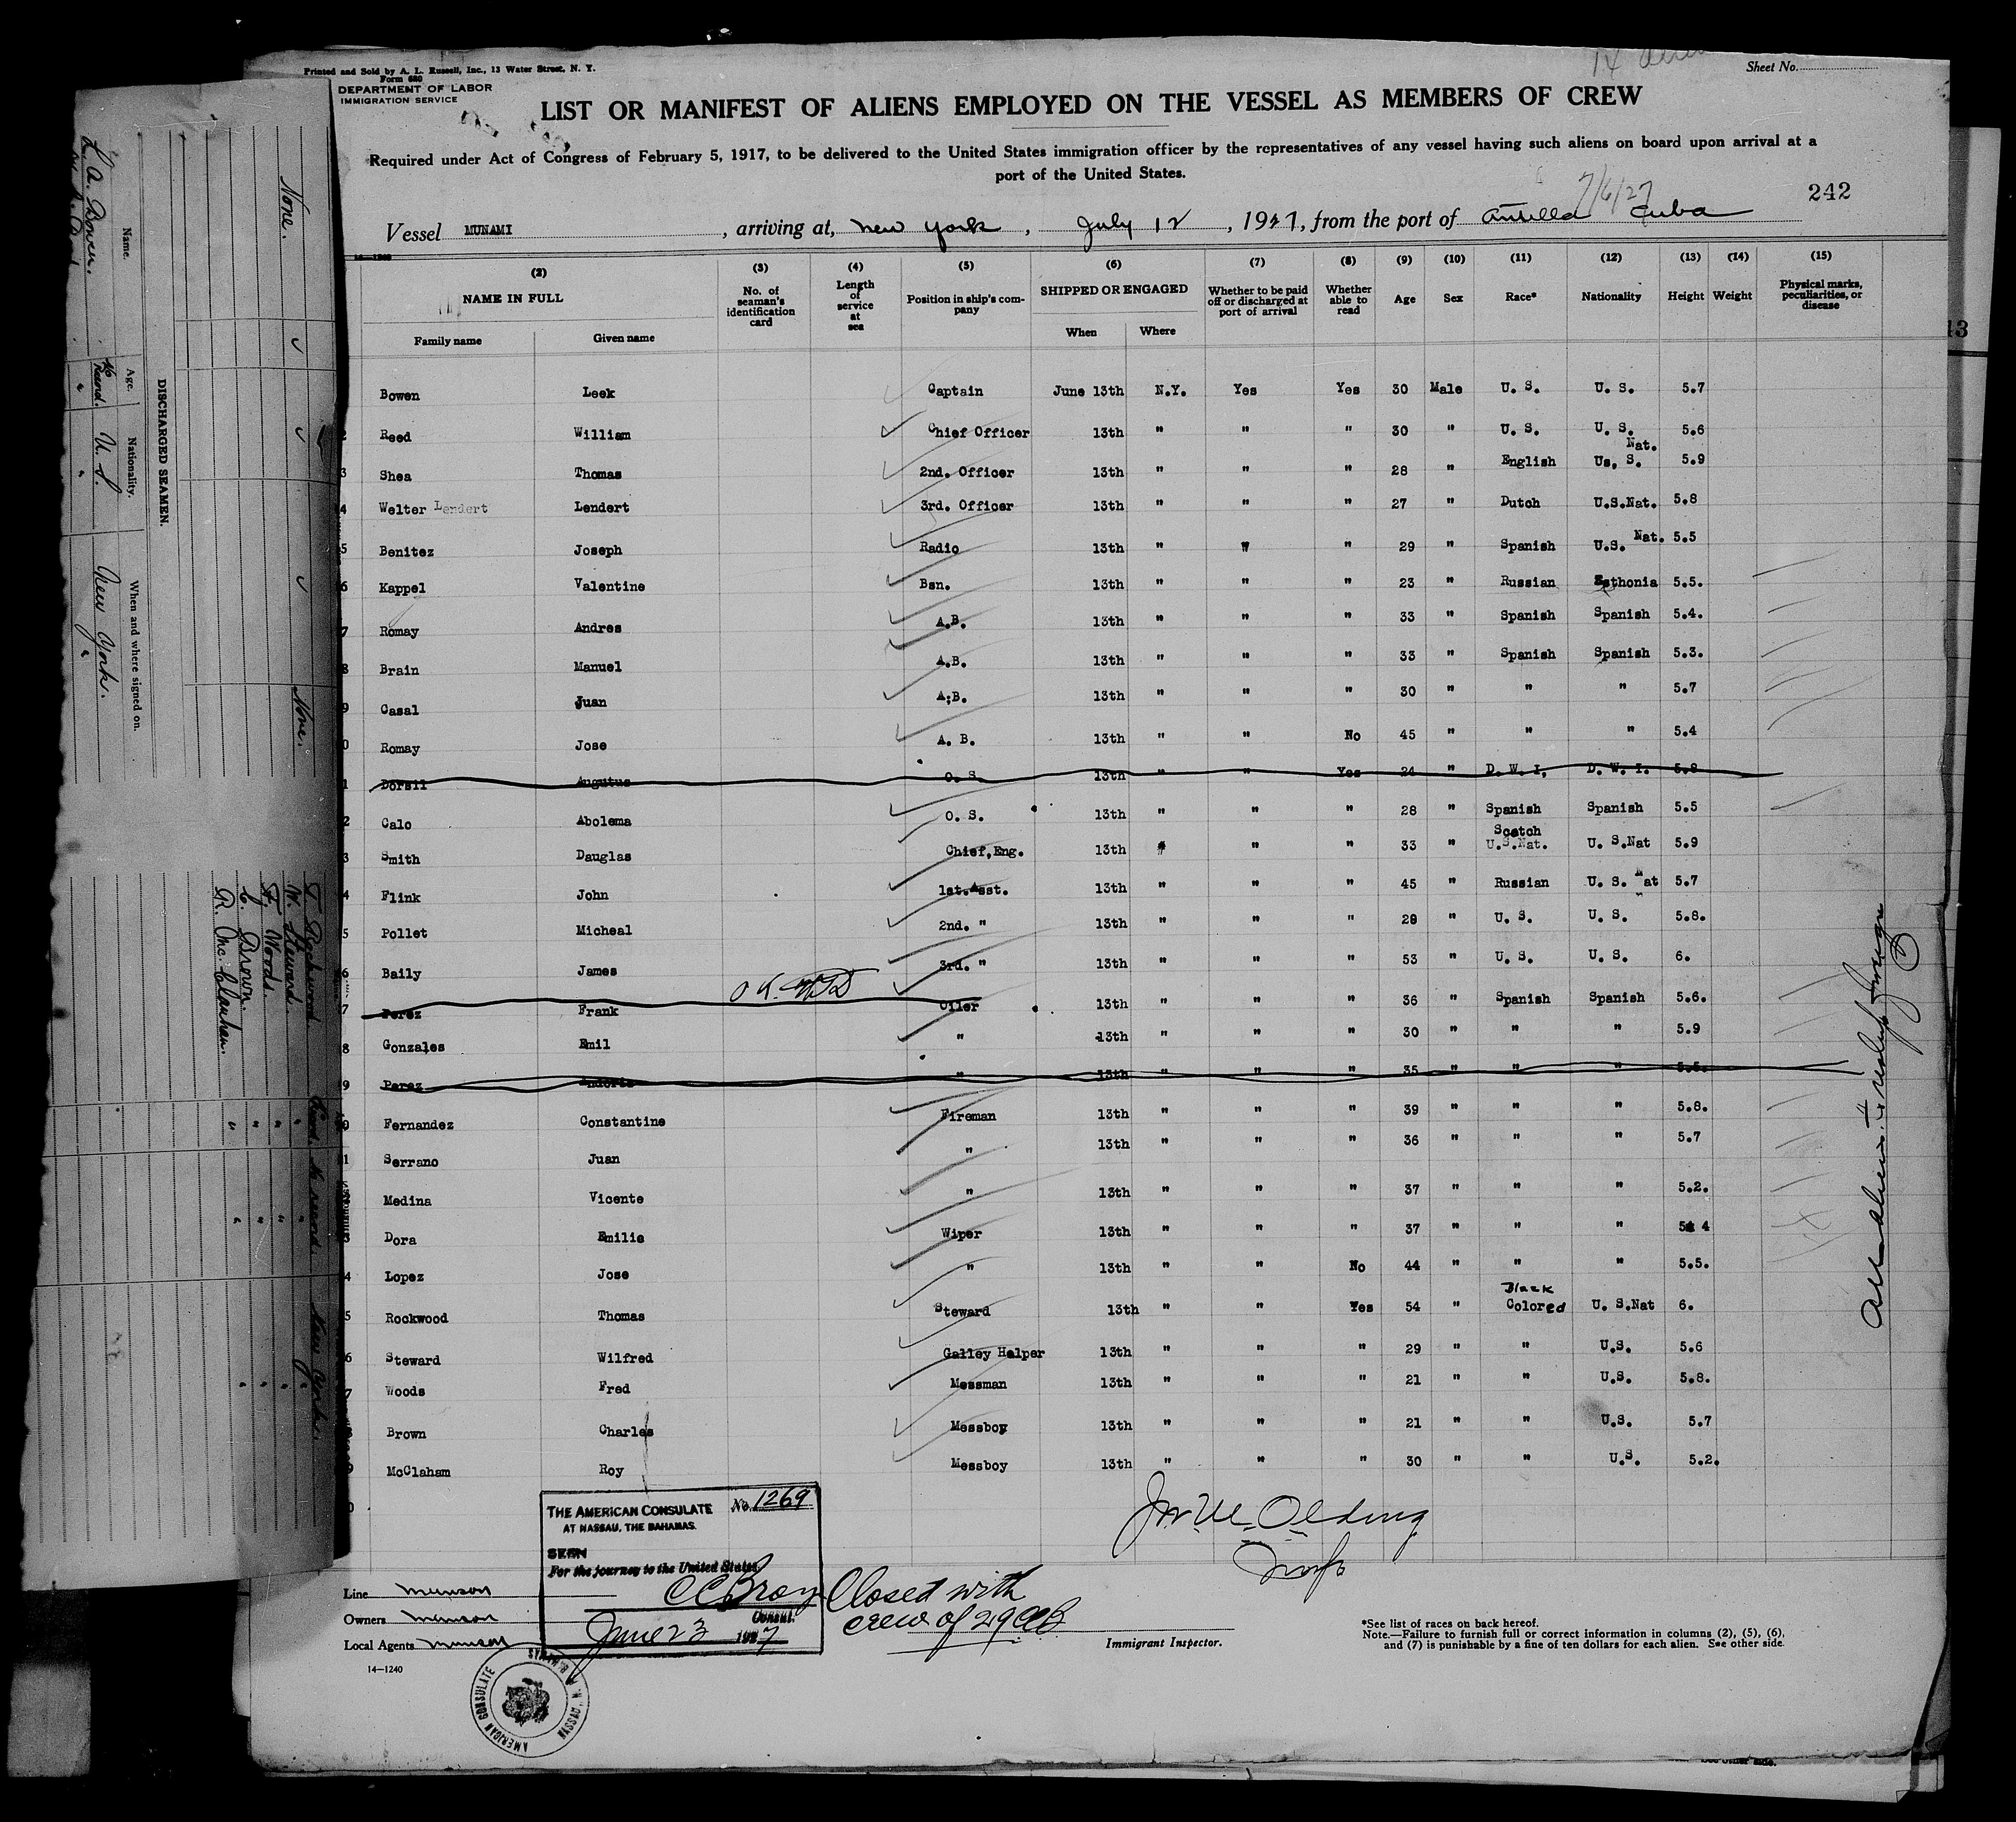 Printed and Sold by A. L. Russell, Inc., 13 Water Street, N. Y.
Form 680
DEPARTMENT OF LABOR
IMMIGRATION SERVICE
Sheet No.
LIST OR MANIFEST OF ALIENS EMPLOYED ON THE VESSEL AS MEMBERS OF CREW
Required under Act of Congress of February 5, 1917, to be delivered to the United States immigration officer by the representatives of any vessel having such aliens on board upon arrival at a
port of the United States.
7/6/27
242
Vessel MUNAMI, arriving at, New York, July 12, 1927, from the port of Antilla Cuba
(2) (3) (4) (5) (6) (7) (8) (9) (10) (11) (12) (13) (14) (15)
NAME IN FULL No. of seaman's identification card Length of service at sea Position in ship's company SHIPPED OR ENGAGED Whether to be paid off or discharged at port of arrival Whether able to read Age Sex Race* Nationality Height Weight Physical marks, peculiarities, or disease
Family name Given name When Where
Bowen Leek Captain June 13th N.Y. Yes Yes 30 Male U. S. U. S. 5.7
2 Reed William Chief Officer 13th " " " 30 " U. S. U. S. 5.6
3 Shea Thomas 2nd. Officer 13th " " " 28 " English Us. S. Nat. 5.9
4 Welter Lendert Lendert 3rd. Officer 13th " " " 27 " Dutch U.S.Nat. 5.8
5 Benitez Joseph Radio 13th " " " 29 " Spanish U.S. Nat. 5.5
6 Kappel Valentine Bsn. 13th " " " 23 " Russian Esthonia 5.5.
7 Romay Andres A.B. 13th " " " 33 " Spanish Spanish 5.4.
8 Brain Manuel A.B. 13th " " " 33 " Spanish Spanish 5.3.
9 Casal Juan A.B. 13th " " " 30 " " " 5.7
0 Romay Jose A. B. 13th " " No 45 " " " 5.4
1 Dorsil Augutus O. S. 13th " " Yes 24 " D. W. I. D. W. I. 5.8
2 Calo Abolema O. S. 13th " " " 28 " Spanish Spanish 5.5
3 Smith Dauglas Chief,Eng. 13th " " " 33 " Scotch U.S.Nat. U. S.Nat 5.9
4 Flink John 1st.Asst. 13th " " " 45 " Russian U. S. Nat 5.7
5 Pollet Micheal 2nd. " 13th " " " 29 " U. S. U. S. 5.8.
6 Baily James 3rd. " 13th " " " 53 " U. S. U. S. 6.
O K.
7 Perez Frank Oiler 13th " " " 36 " Spanish Spanish 5.6.
8 Gonzales Emil " 13th " " " 30 " " " 5.9
9 Perez " 13th " " " 35 " " " 5.5.
0 Fernandez Constantine Fireman 13th " " " 39 " " " 5.8.
1 Serrano Juan " 13th " " " 36 " " " 5.7
Medina Vicente " 13th " " " 37 " " " 5.2.
3 Dora Emilie Wiper 13th " " " 37 " " " 5. 4
4 Lopez Jose " 13th " " No 44 " " " 5.5.
5 Rockwood Thomas Steward 13th " " Yes 54 " Black Colored U. S.Nat 6.
6 Steward Wilfred Galley Helper 13th " " " 29 " " U.S. 5.6
7 Woods Fred Messman 13th " " " 21 " " U.S. 5.8.
8 Brown Charles Messboy 13th " " " 21 " " U.S. 5.7
9 McClaham Roy Messboy 13th " " " 30 " " U.S. 5.2.
0
THE AMERICAN CONSULATE No. 1269
AT NASSAU, THE BAHAMAS.
SEEN
For the journey to the United States.
Consul.
June 23 1927
Closed with
crew of 29
Line Munson
Owners Munson
Local Agents Munson
14—1240
Immigrant Inspector.
*See list of races on back hereof.
Note.—Failure to furnish full or correct information in columns (2), (5), (6),
and (7) is punishable by a fine of ten dollars for each alien. See other side.
AMERICAN CONSULATE
NASSAU, N. P. BAHAMAS
DISCHARGED SEAMEN.
Name. Age. Nationality. When and where signed on.
L. A. Bowen. U. S. New York.
None.
None.
T. Rockwood
W. Steward.
F. Woods.
C. Brown.
R. McClanhan.
New York.
13